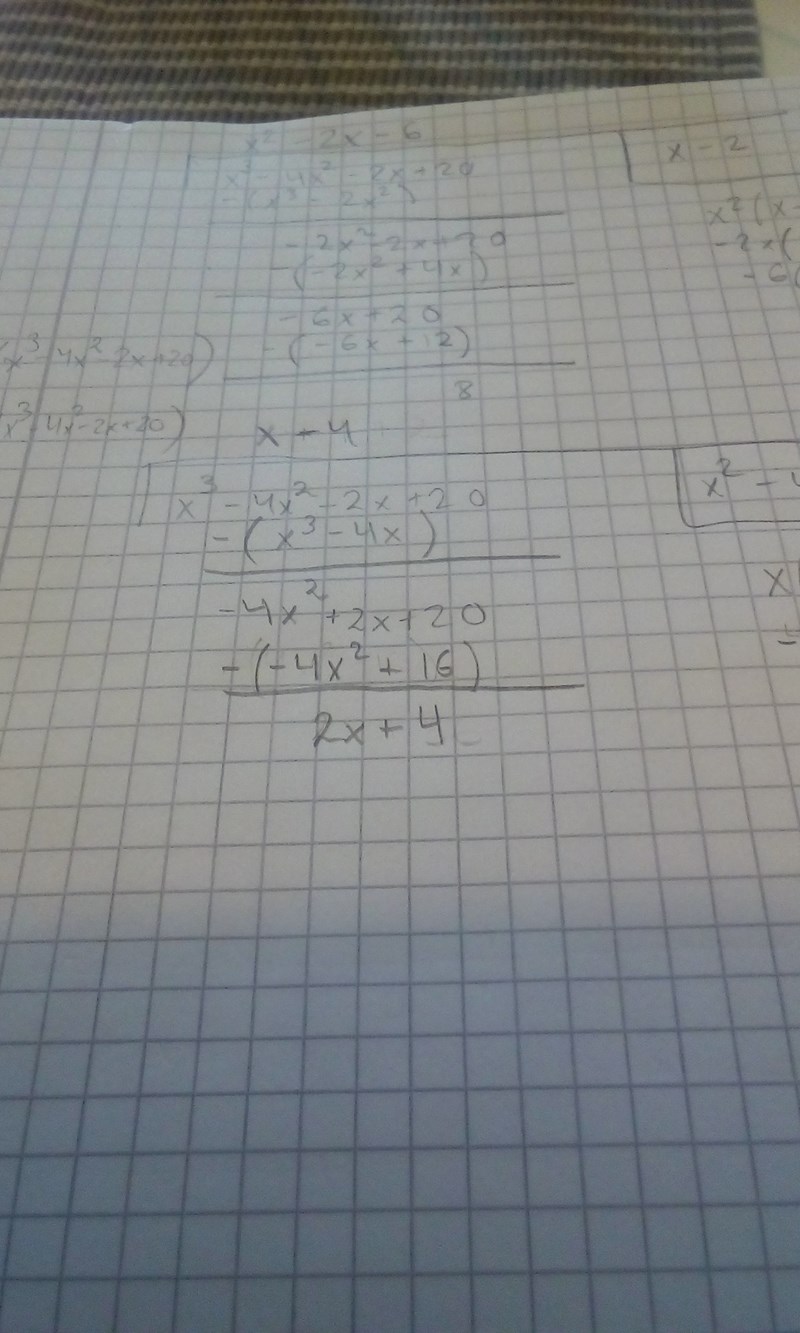 x² - 2x - 6
x³ - 4x² - 2x + 20 x - 2
-(x³ - 2x²) x²(x-
-2x² - 2x + 20 -2x(
-(-2x² + 4x) -6(
-6x + 20
-(-6x + 12)
x³ 4x² 2x+20)
8
x³ 4x² - 2x + 20)
x - 4
x³ - 4x² - 2x + 20 x² - 4
-(x³ - 4x)
-4x² + 2x + 20 x
-(-4x² + 16)
2x + 4